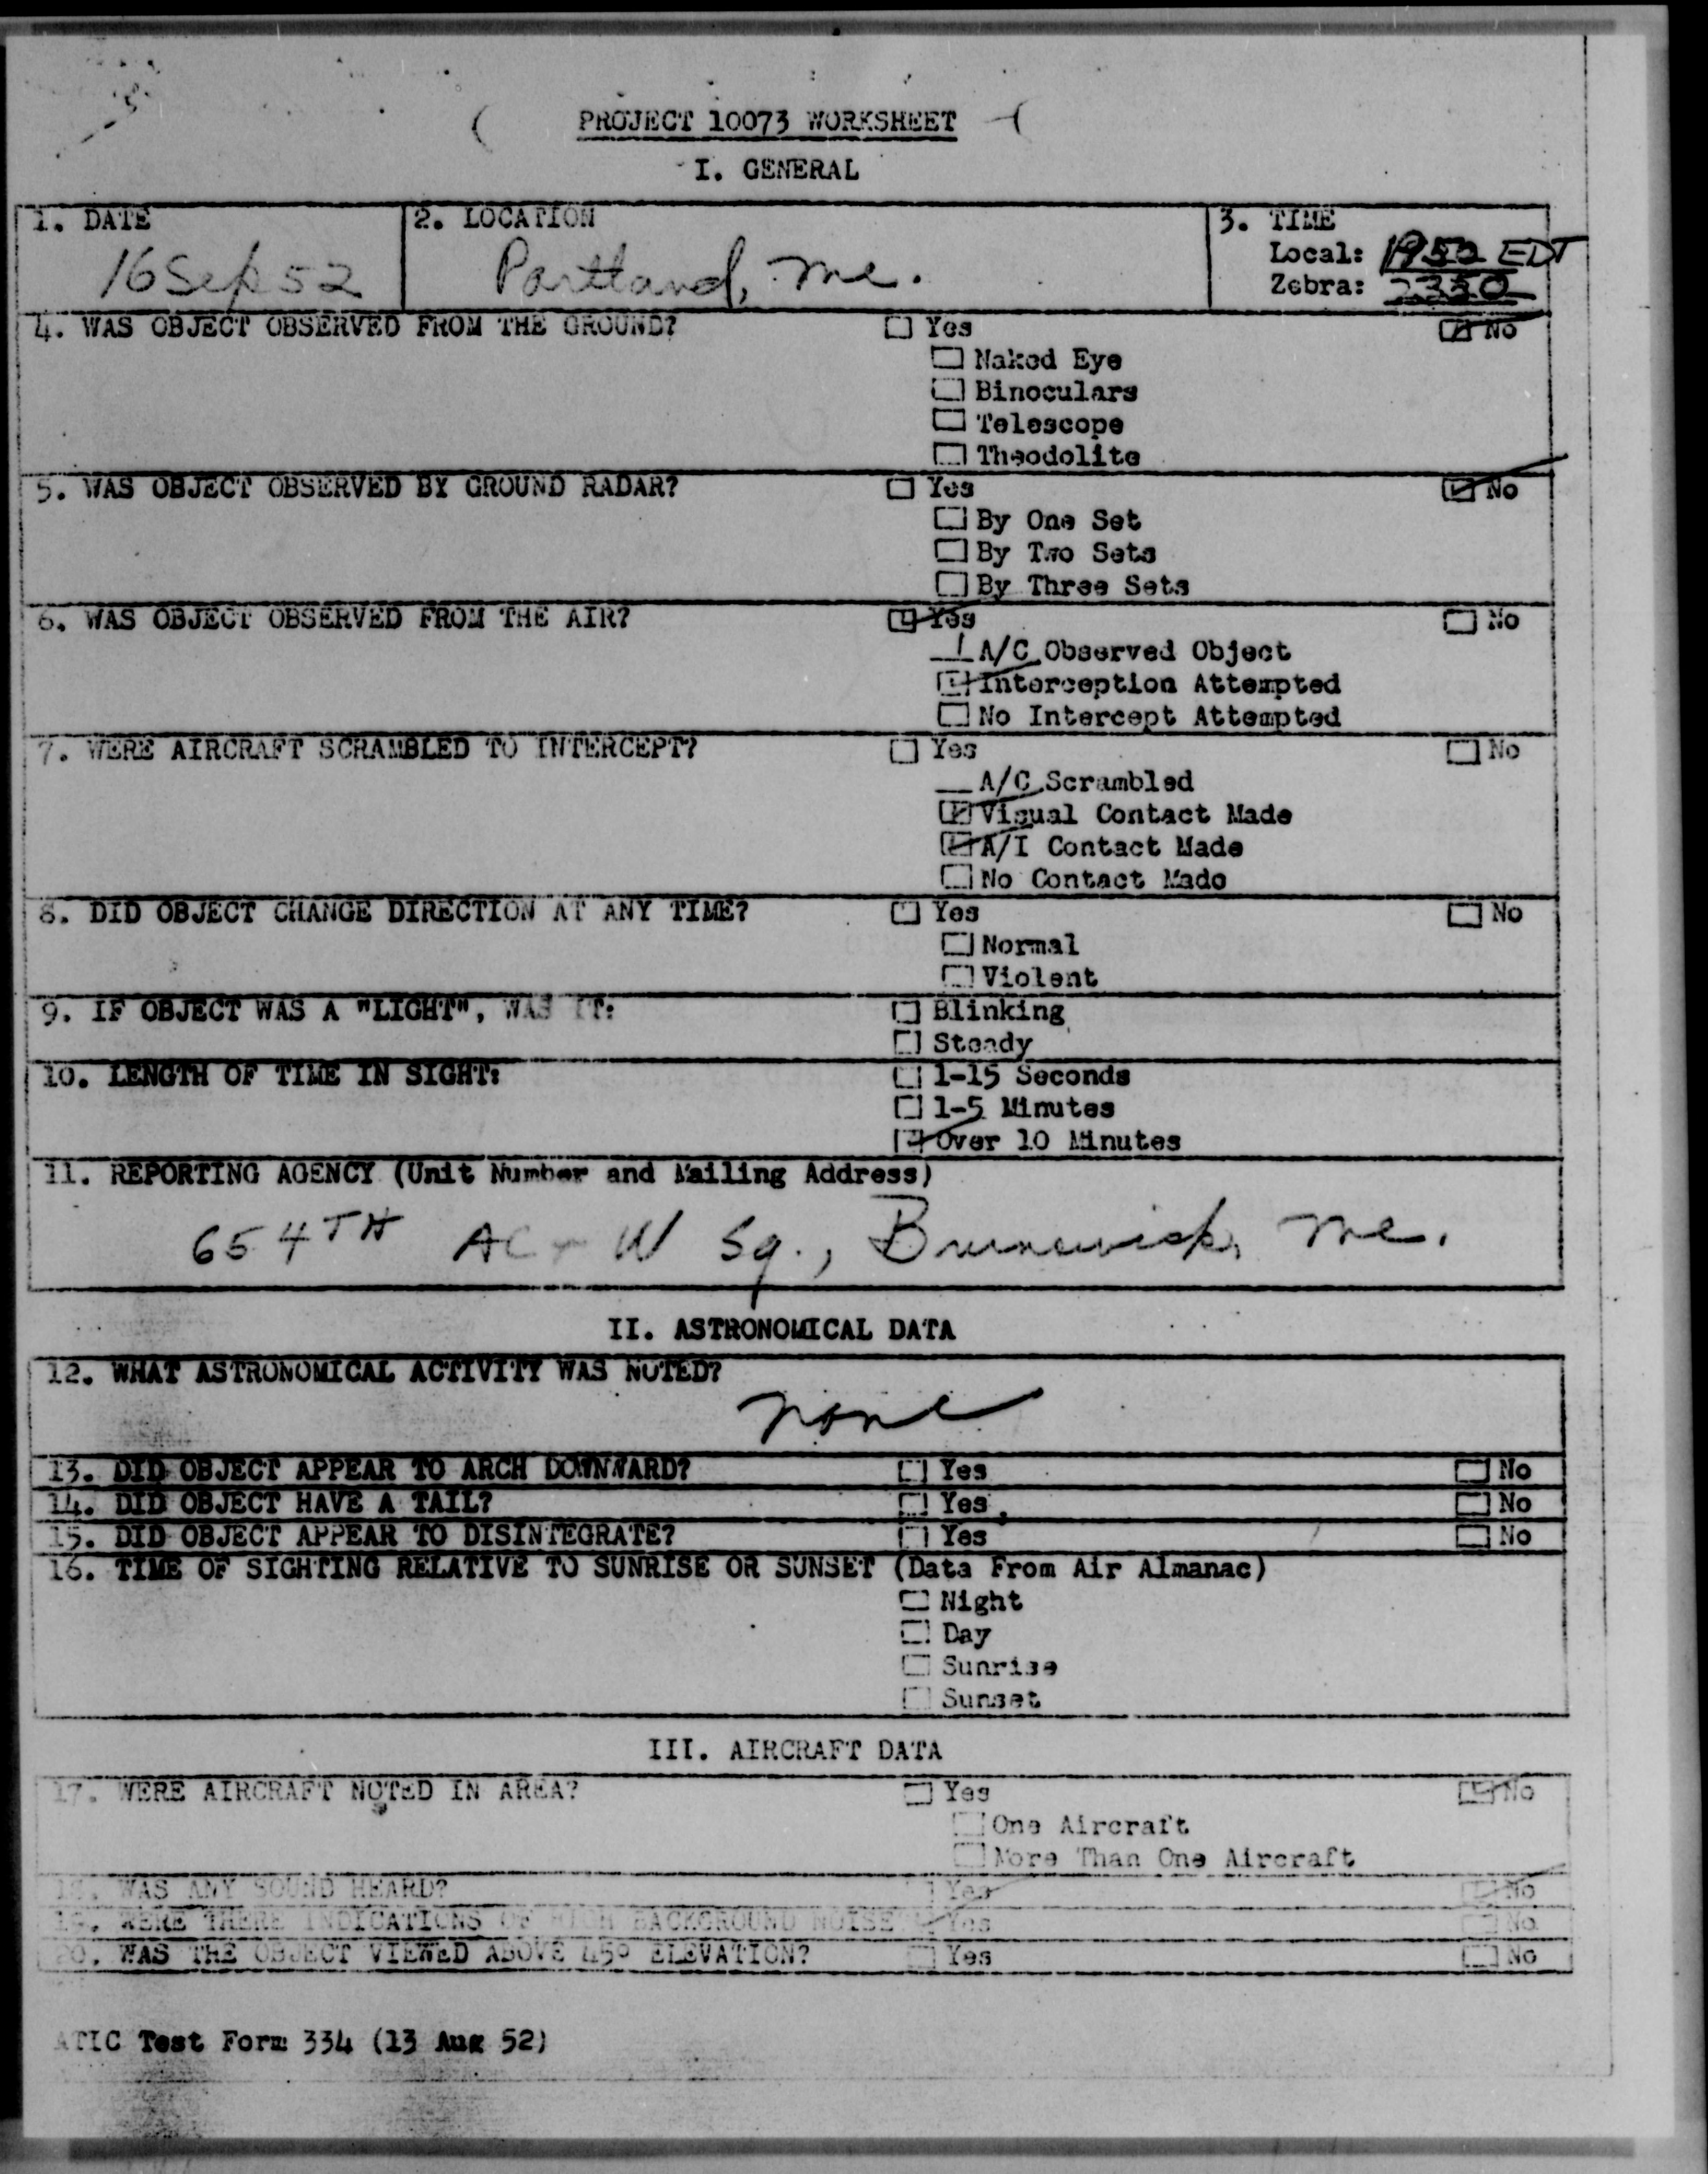 PROJECT 10073 WORKSHEET
I. GENERAL
1. DATE
16 Sep 52
2. LOCATION
Portland, Me.
3. TIME
Local: 1950 EDT
Zebra: 2350
4. WAS OBJECT OBSERVED FROM THE GROUND? Yes No
Naked Eye
Binoculars
Telescope
Theodolite
5. WAS OBJECT OBSERVED BY GROUND RADAR? Yes No
By One Set
By Two Sets
By Three Sets
6. WAS OBJECT OBSERVED FROM THE AIR? Yes No
1 A/C Observed Object
Interception Attempted
No Intercept Attempted
7. WERE AIRCRAFT SCRAMBLED TO INTERCEPT? Yes No
A/C Scrambled
Visual Contact Made
A/I Contact Made
No Contact Made
8. DID OBJECT CHANGE DIRECTION AT ANY TIME? Yes No
Normal
Violent
9. IF OBJECT WAS A "LIGHT", WAS IT: Blinking
Steady
10. LENGTH OF TIME IN SIGHT: 1-15 Seconds
1-5 Minutes
Over 10 Minutes
11. REPORTING AGENCY (Unit Number and Mailing Address)
654TH AC + W Sq., Brunswick, Me.
II. ASTRONOMICAL DATA
12. WHAT ASTRONOMICAL ACTIVITY WAS NOTED?
None
13. DID OBJECT APPEAR TO ARCH DOWNWARD? Yes No
14. DID OBJECT HAVE A TAIL? Yes No
15. DID OBJECT APPEAR TO DISINTEGRATE? Yes No
16. TIME OF SIGHTING RELATIVE TO SUNRISE OR SUNSET (Data From Air Almanac)
Night
Day
Sunrise
Sunset
III. AIRCRAFT DATA
17. WERE AIRCRAFT NOTED IN AREA? Yes No
One Aircraft
More Than One Aircraft
18. WAS ANY SOUND HEARD? Yes No
19. WERE THERE INDICATIONS OF HIGH BACKGROUND NOISE Yes No
20. WAS THE OBJECT VIEWED ABOVE 45° ELEVATION? Yes No
ATIC Test Form 334 (13 Aug 52)